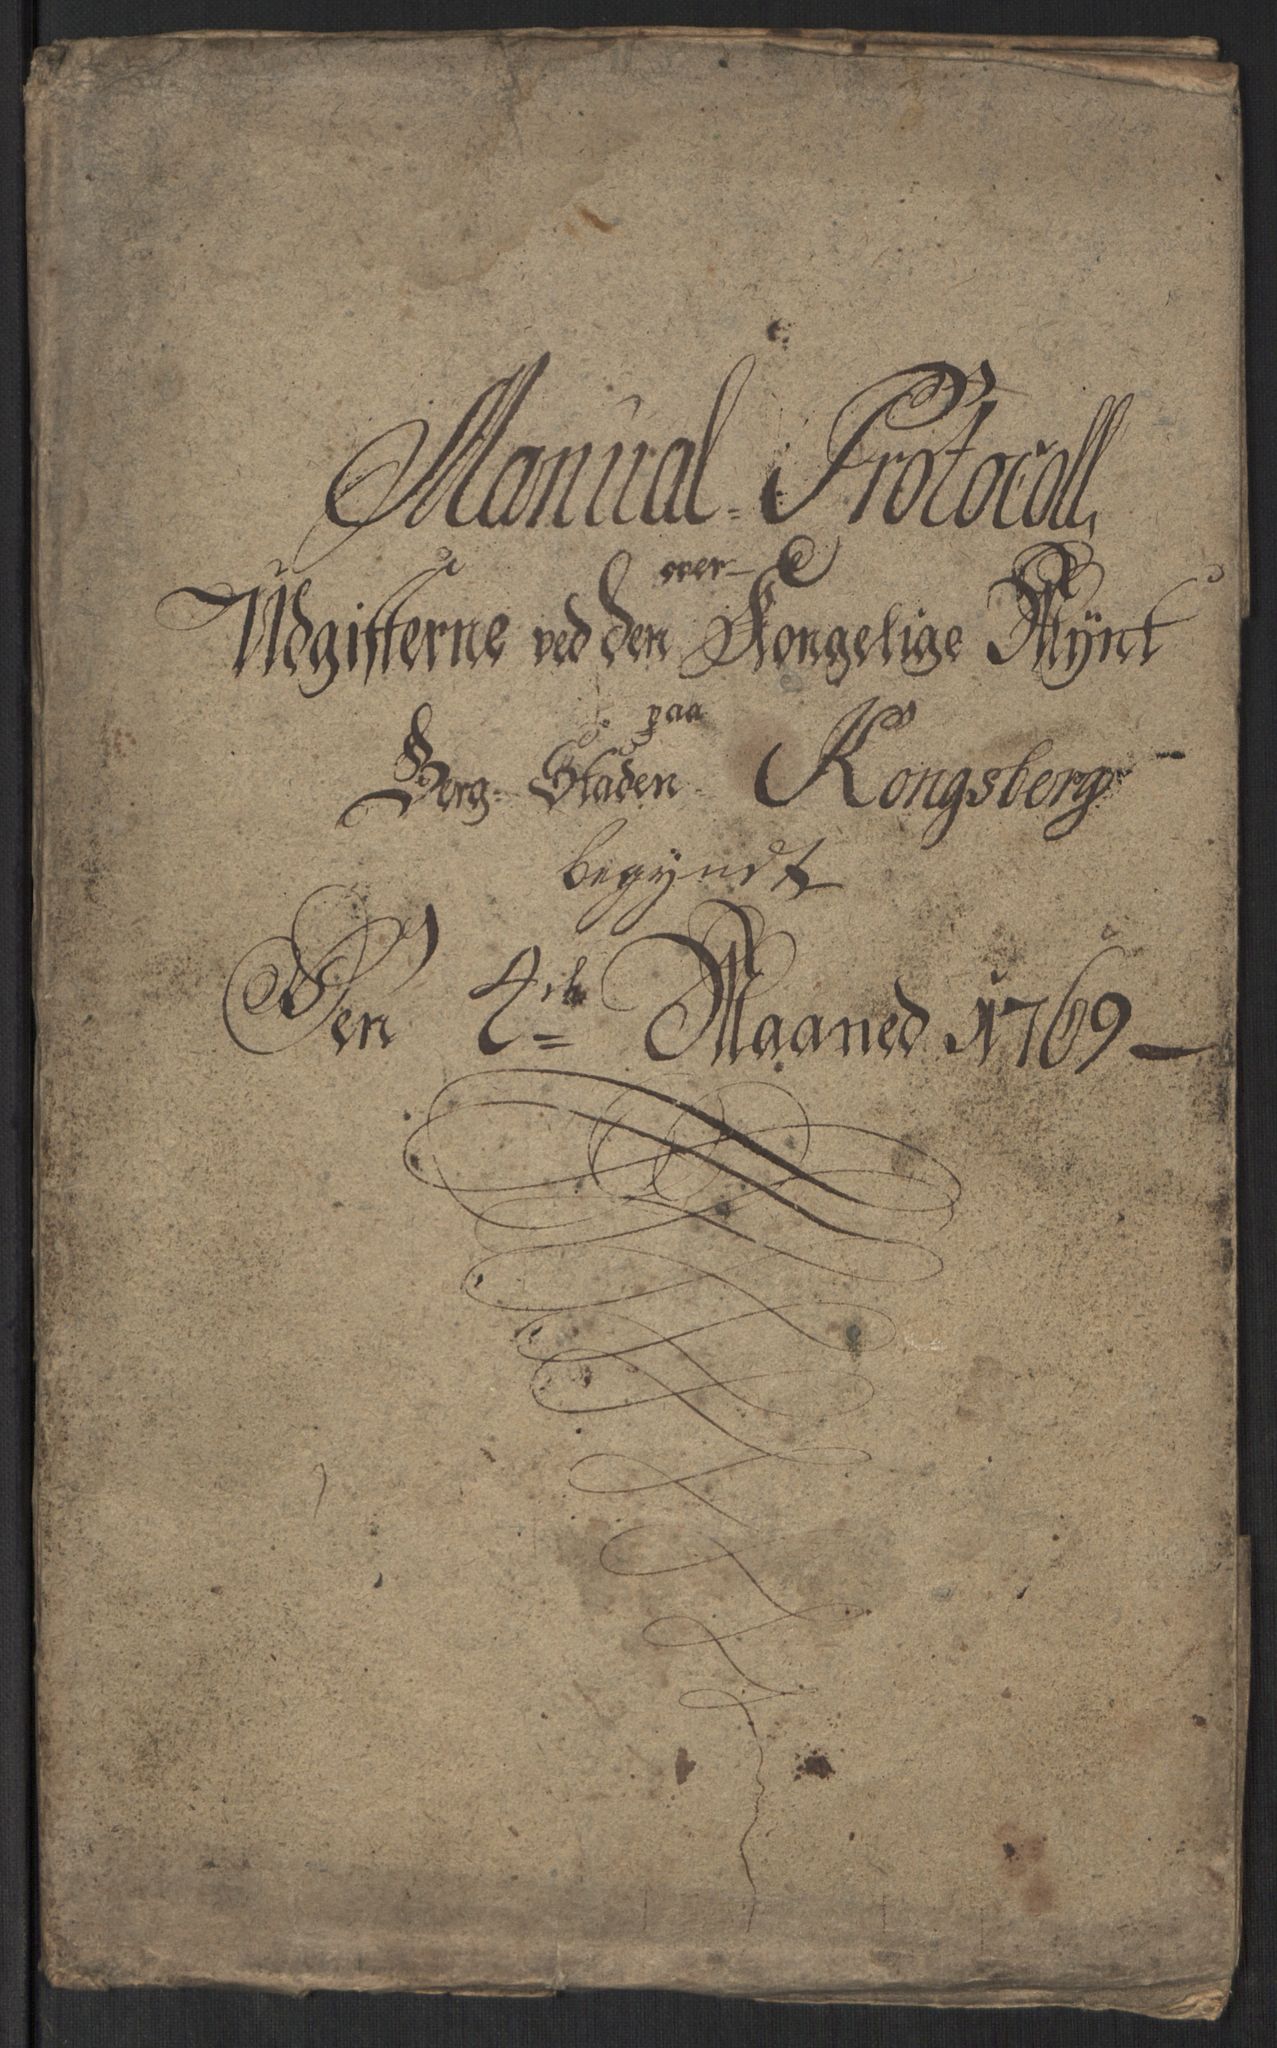 Manual=Protocoll,
over
Udgifterne ved den Kongelige Mÿnt
paa
Berg-Staden Kongsberg
begÿndt
Den 2de Maaned 1769